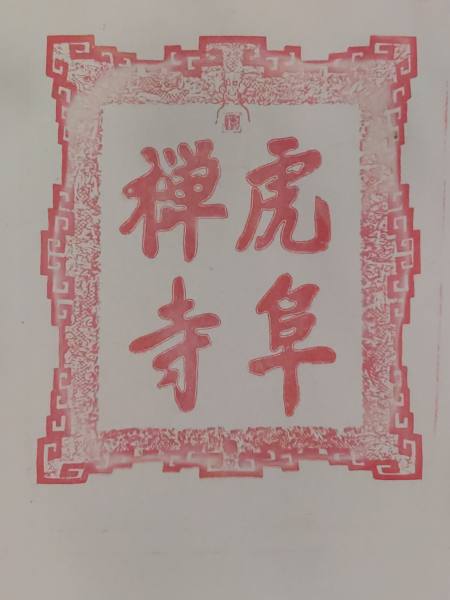 虎阜
禅寺